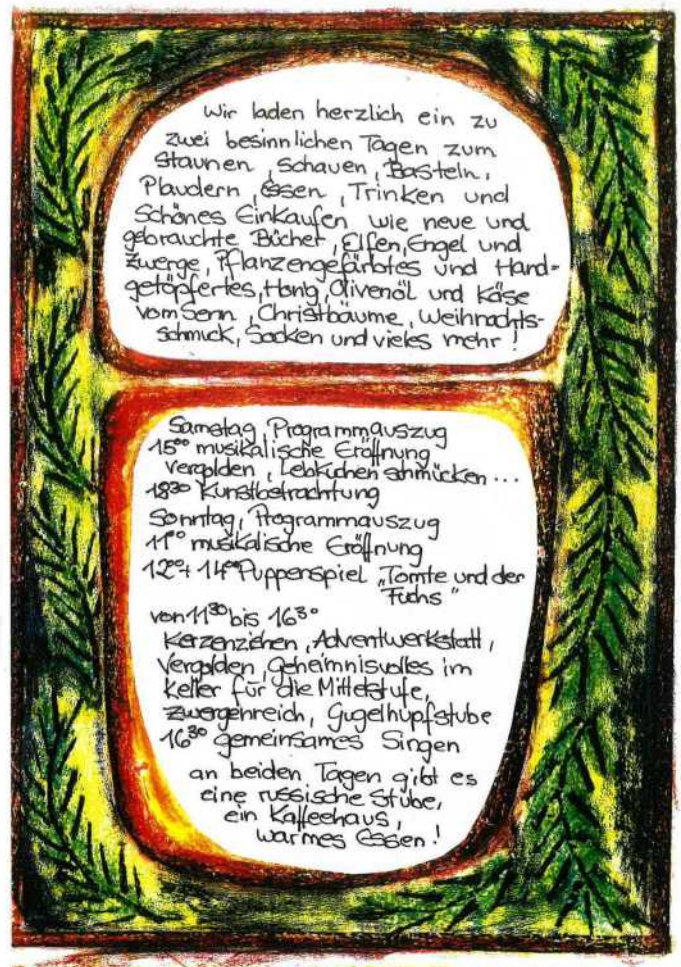 Wir laden herzlich ein zu
zwei besinnlichen Tagen zum
Staunen, schauen, Basteln,
Plaudern, Essen, Trinken und
Schönes Einkaufen wie neue und
gebrauchte Bücher, Elfen, Engel und
Zwerge, Pflanzengefärbtes und Hand-
getöpfertes, Honig, Olivenöl und Käse
vom Senn, Christbäume, Weihnachts-
schmuck, Socken und vieles mehr!
Samstag, Programmauszug
15⁰⁰ musikalische Eröffnung
vergolden, Lebkuchen schmücken ...
18³⁰ Kunstbetrachtung
Sonntag, Programmauszug
11⁰⁰ musikalische Eröffnung
12⁰⁰ + 14⁰⁰ Puppenspiel „Tomte und der
Fuchs"
von 11³⁰ bis 16³⁰
Kerzenziehen, Adventwerkstatt,
Vergolden, Geheimnisvolles im
Keller für die Mittelstufe,
Zwergenreich, Gugelhupfstube
16³⁰ gemeinsames Singen
an beiden Tagen gibt es
eine russische Stube,
ein Kaffeehaus,
warmes Essen!